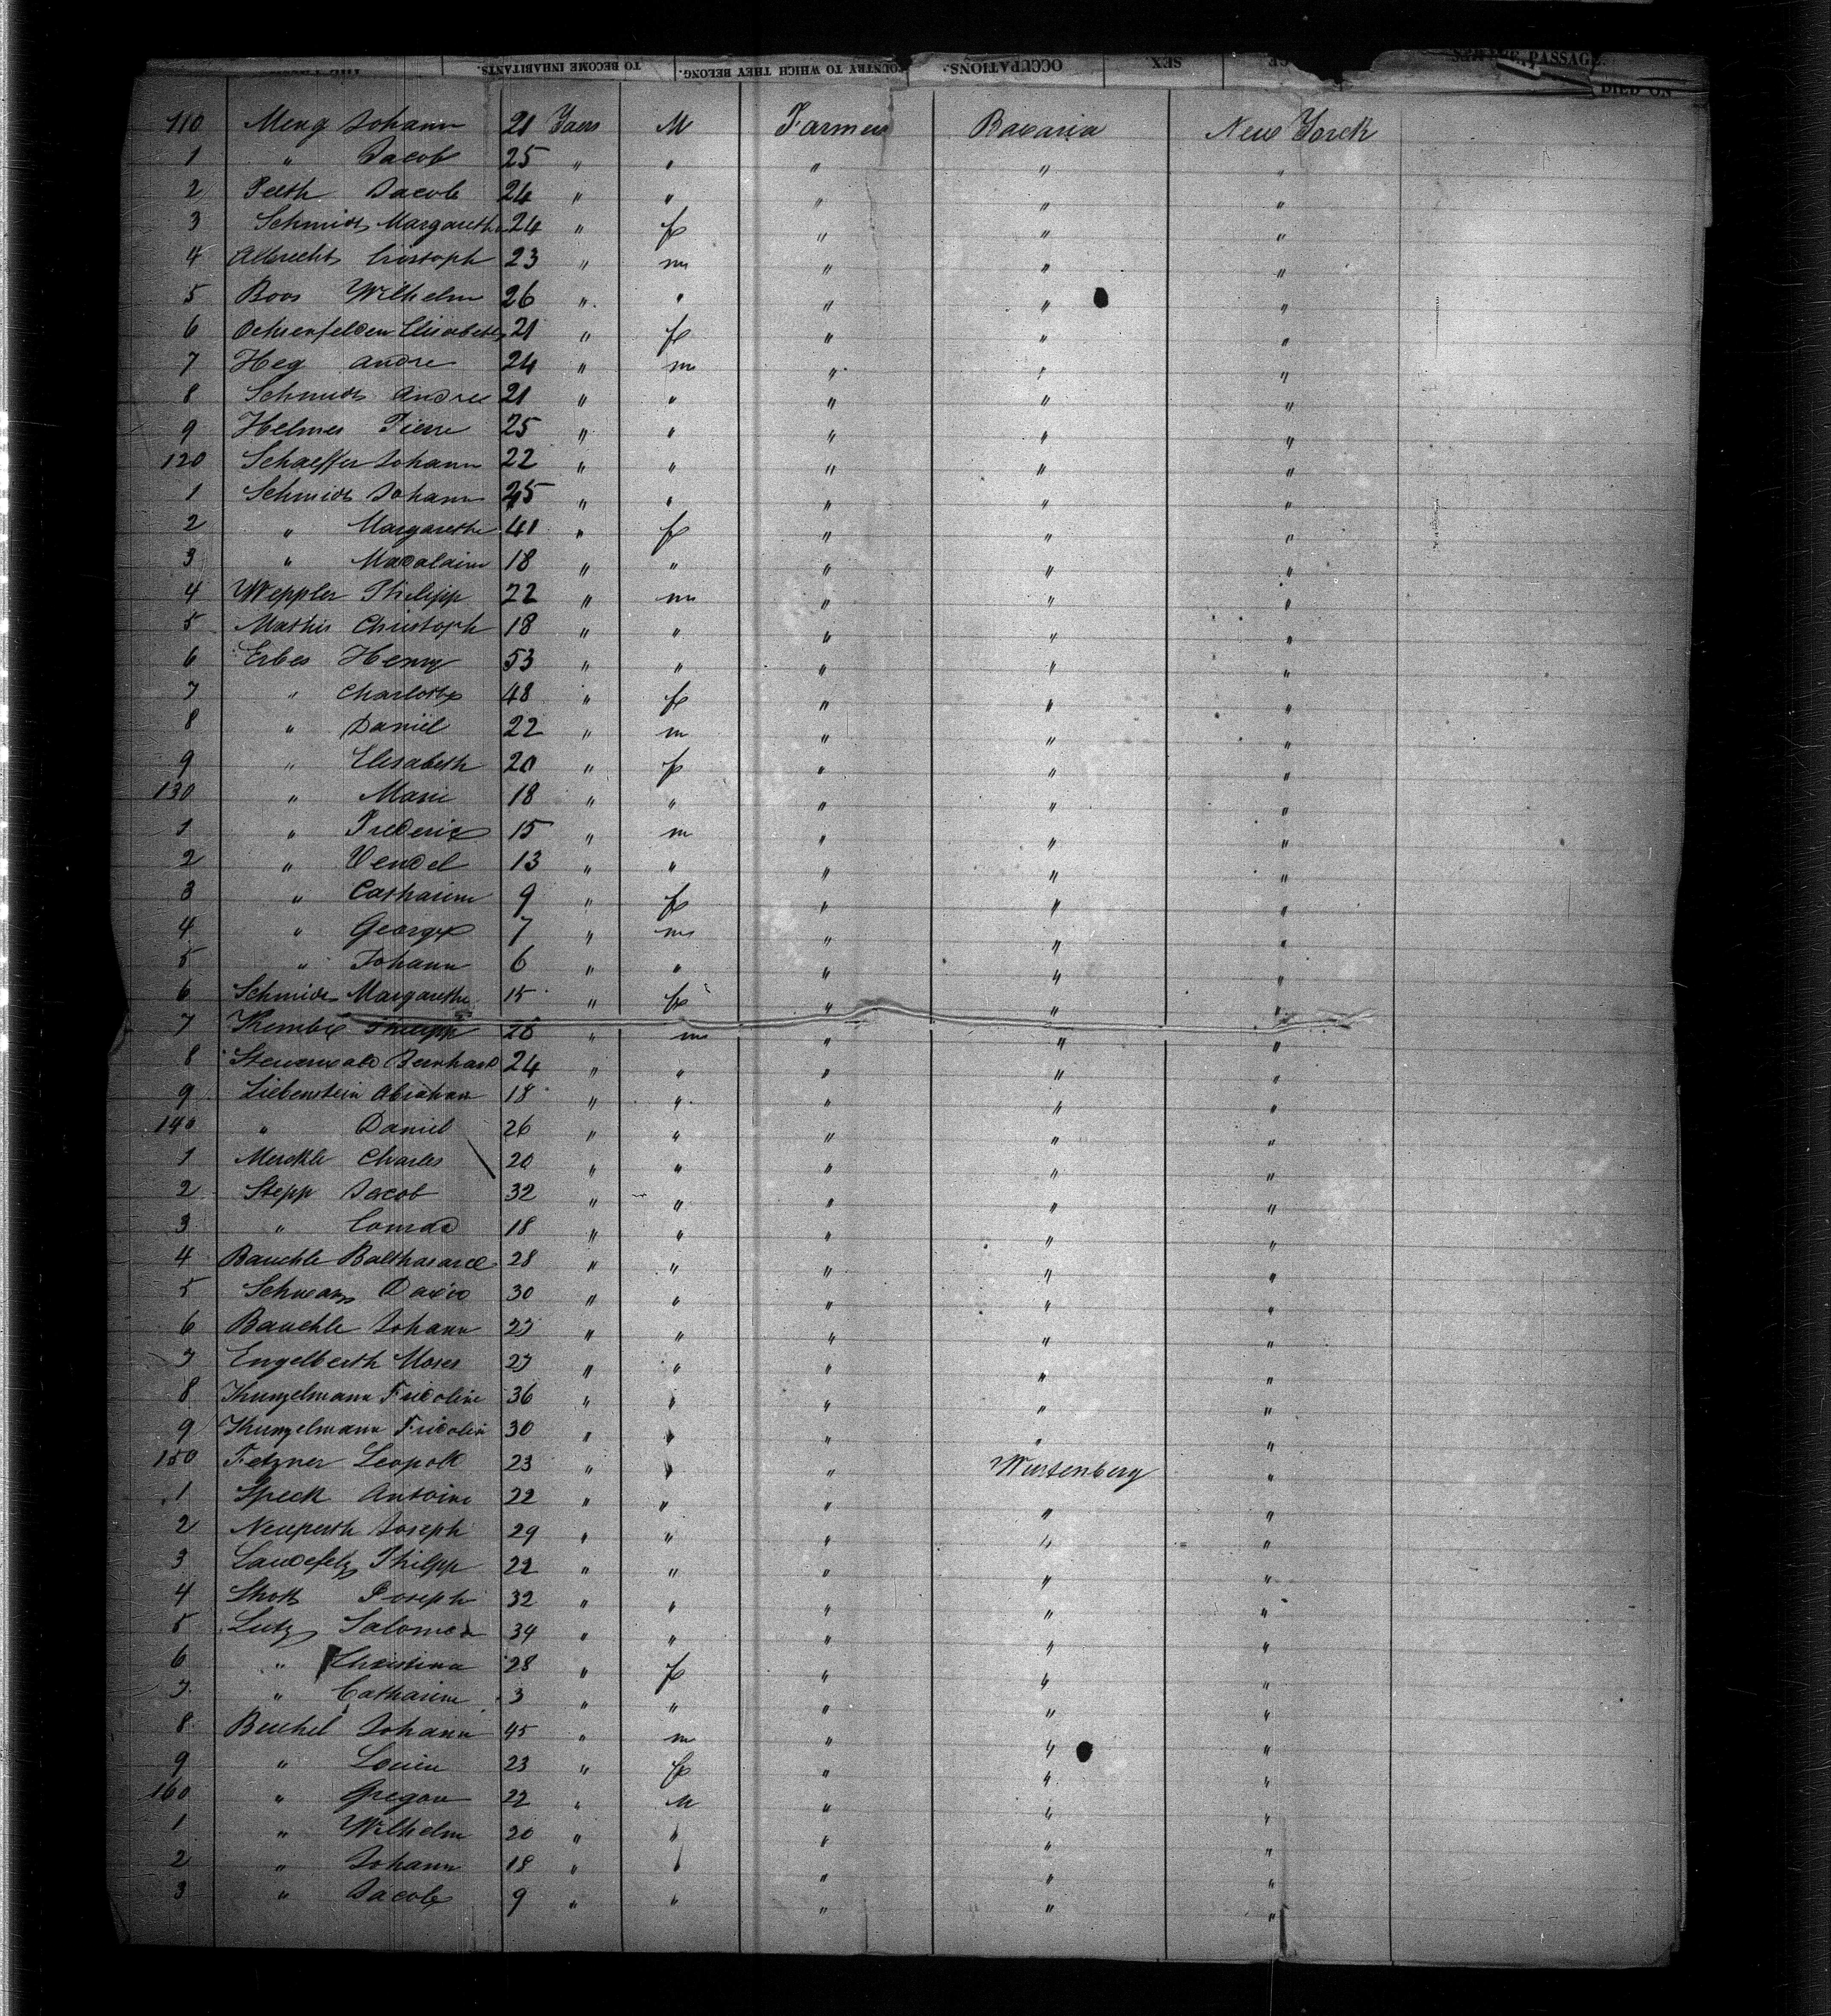 TO BECOME INHABITANTS. COUNTRY TO WHICH THEY BELONG. OCCUPATIONS. SEX. PASSAGE. DIED ON
110 Meng Johann 21 Years M Farmer Bavaria New Yorck
1 " Jacob 25 " " " " "
2 Jacob 24 " " " " "
3 Schmidt Margareth 24 " f " " "
4 Albrecht Cristoph 23 " m " " "
5 Boos Wilhelm 26 " " " " "
6 Elisabeth 21 " f " " "
7 Heg Andre 24 " m " " "
8 Schmidt Andre 21 " " " " "
9 Helmer Pierre 25 " " " " "
120 Schaeffer Johann 22 " " " " "
1 Schmidt Johann 45 " " " " "
2 " Margarethe 41 " f " " "
3 " Madalaine 18 " " " " "
4 Weppler Philipp 22 " m " " "
5 Mathis Christoph 18 " " " " "
6 Erbes Henry 53 " " " " "
7 " Charlotte 48 " f " " "
8 " Daniel 22 " m " " "
9 " Elisabeth 20 " f " " "
130 " Marie 18 " " " " "
1 " Frederic 15 " m " " "
2 " Vendel 13 " " " " "
3 " Catharine 9 " f " " "
4 " George 7 " m " " "
5 " Johann 6 " " " " "
6 Schmidt Margarethe 15 " f " " "
7 Philipp 26 " m " " "
8 Bernhard 24 " " " " "
9 Liebenstein Abraham 18 " " " " "
140 " Daniel 26 " " " " "
1 Merckle Charles 20 " " " " "
2 Stepp Jacob 32 " " " " "
3 " Conrad 18 " " " " "
4 Bauchle 28 " " " " "
5 Schwarz David 30 " " " " "
6 Bauchle Johann 27 " " " " "
7 Engelberth Moses 27 " " " " "
8 Kunzelmann Fridoline 36 " " " " "
9 Kunzelmann Fridolin 30 " " " " "
150 Fetzner Leopold 23 " " " Wurtenberg "
1 Speck Antoine 22 " " " " "
2 Neuperth Joseph 29 " " " " "
3 Landefelz Philpp 22 " " " " "
4 Joseph 32 " " " " "
5 Lutz Salomea 34 " " " " "
6 " Christina 28 " f " " "
7 " Catharine 3 " " " " "
8 Beuchel Johann 45 " m " " "
9 " Louise 23 " f " " "
160 " 22 " M " " "
1 " Wilhelm 20 " " " " "
2 " Johann 18 " " " " "
3 " Jacob 9 " " " " "